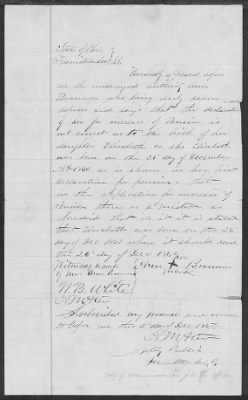 State of Ohio
Hamilton Co SS
Personally appeared before
me the undersigned authority Ann
Brannan who being duly sworn
deposes and says that the declaration
of her for increase of Pension is
not correct as to the birth of her
daughter Elizabeth as she Elizabeth
was born on the 26 day of December
AD 1860 as is shown in her first
declaration for pension that
in the application for increase of
Pension there is a mistake
in it is stated
that Elizabeth was born on the 26
day of Dec 1861 when it should read
the 26 day of Dec 1860
Witnesses
Ann + Brannan
mark
W B White
Subscribed my presence and sworn
to before me this day of Dec
Notary Public
Hamilton Co O